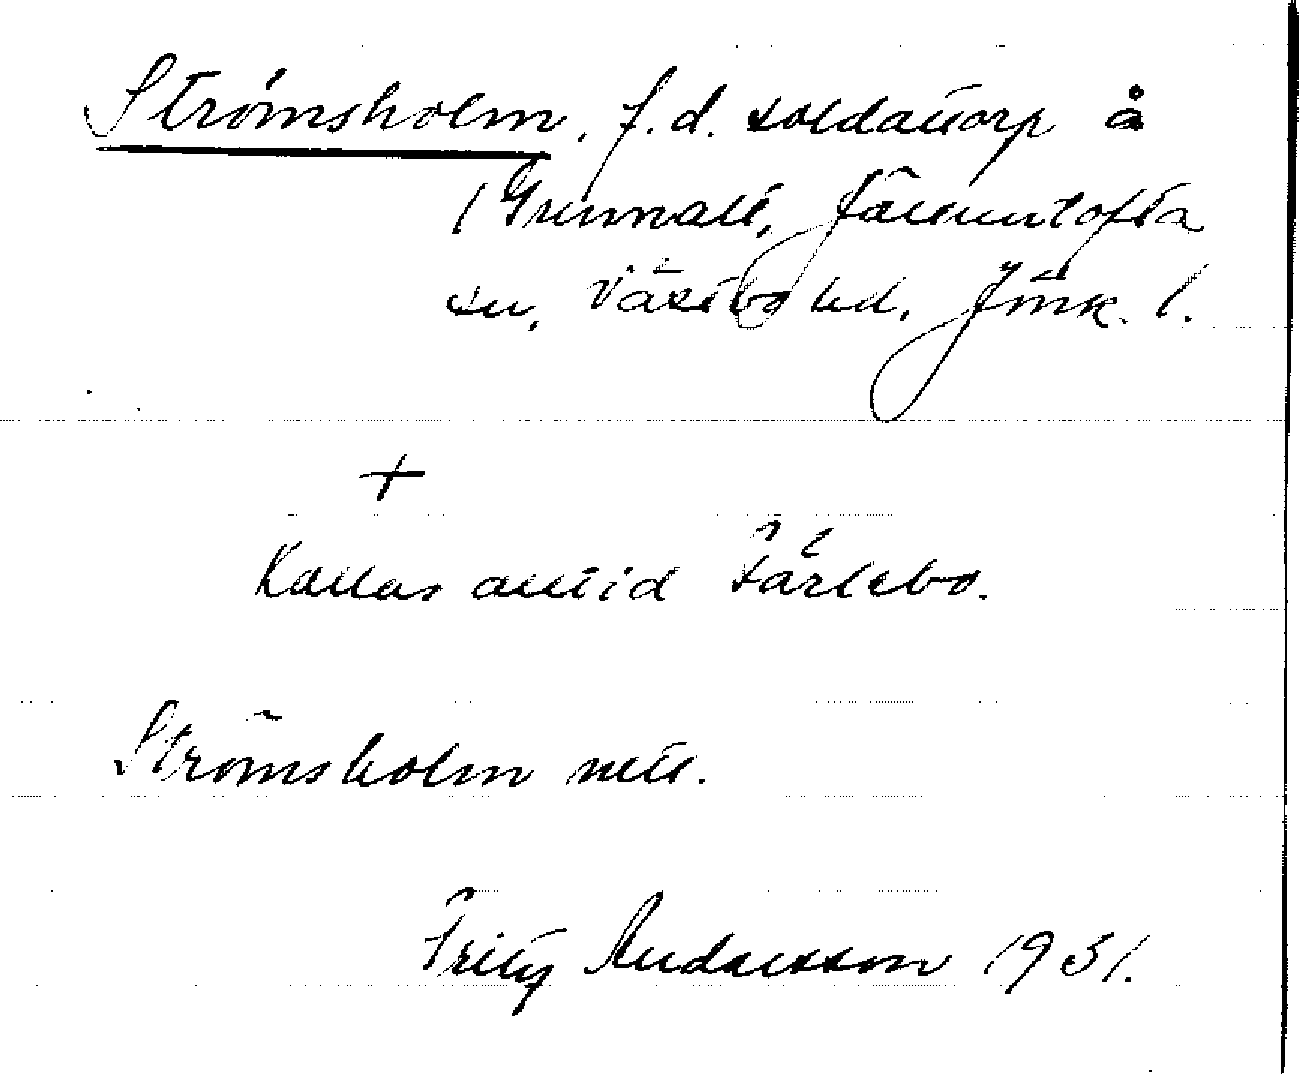 Strömsholm, f.d. soldattorp å
Grunnalt, Färentofta
sn, Västbo hd, Jönk. l.
+
Kallas alltid Färlebo.
Strömsholm nell.
Fritz Andersson 1931.